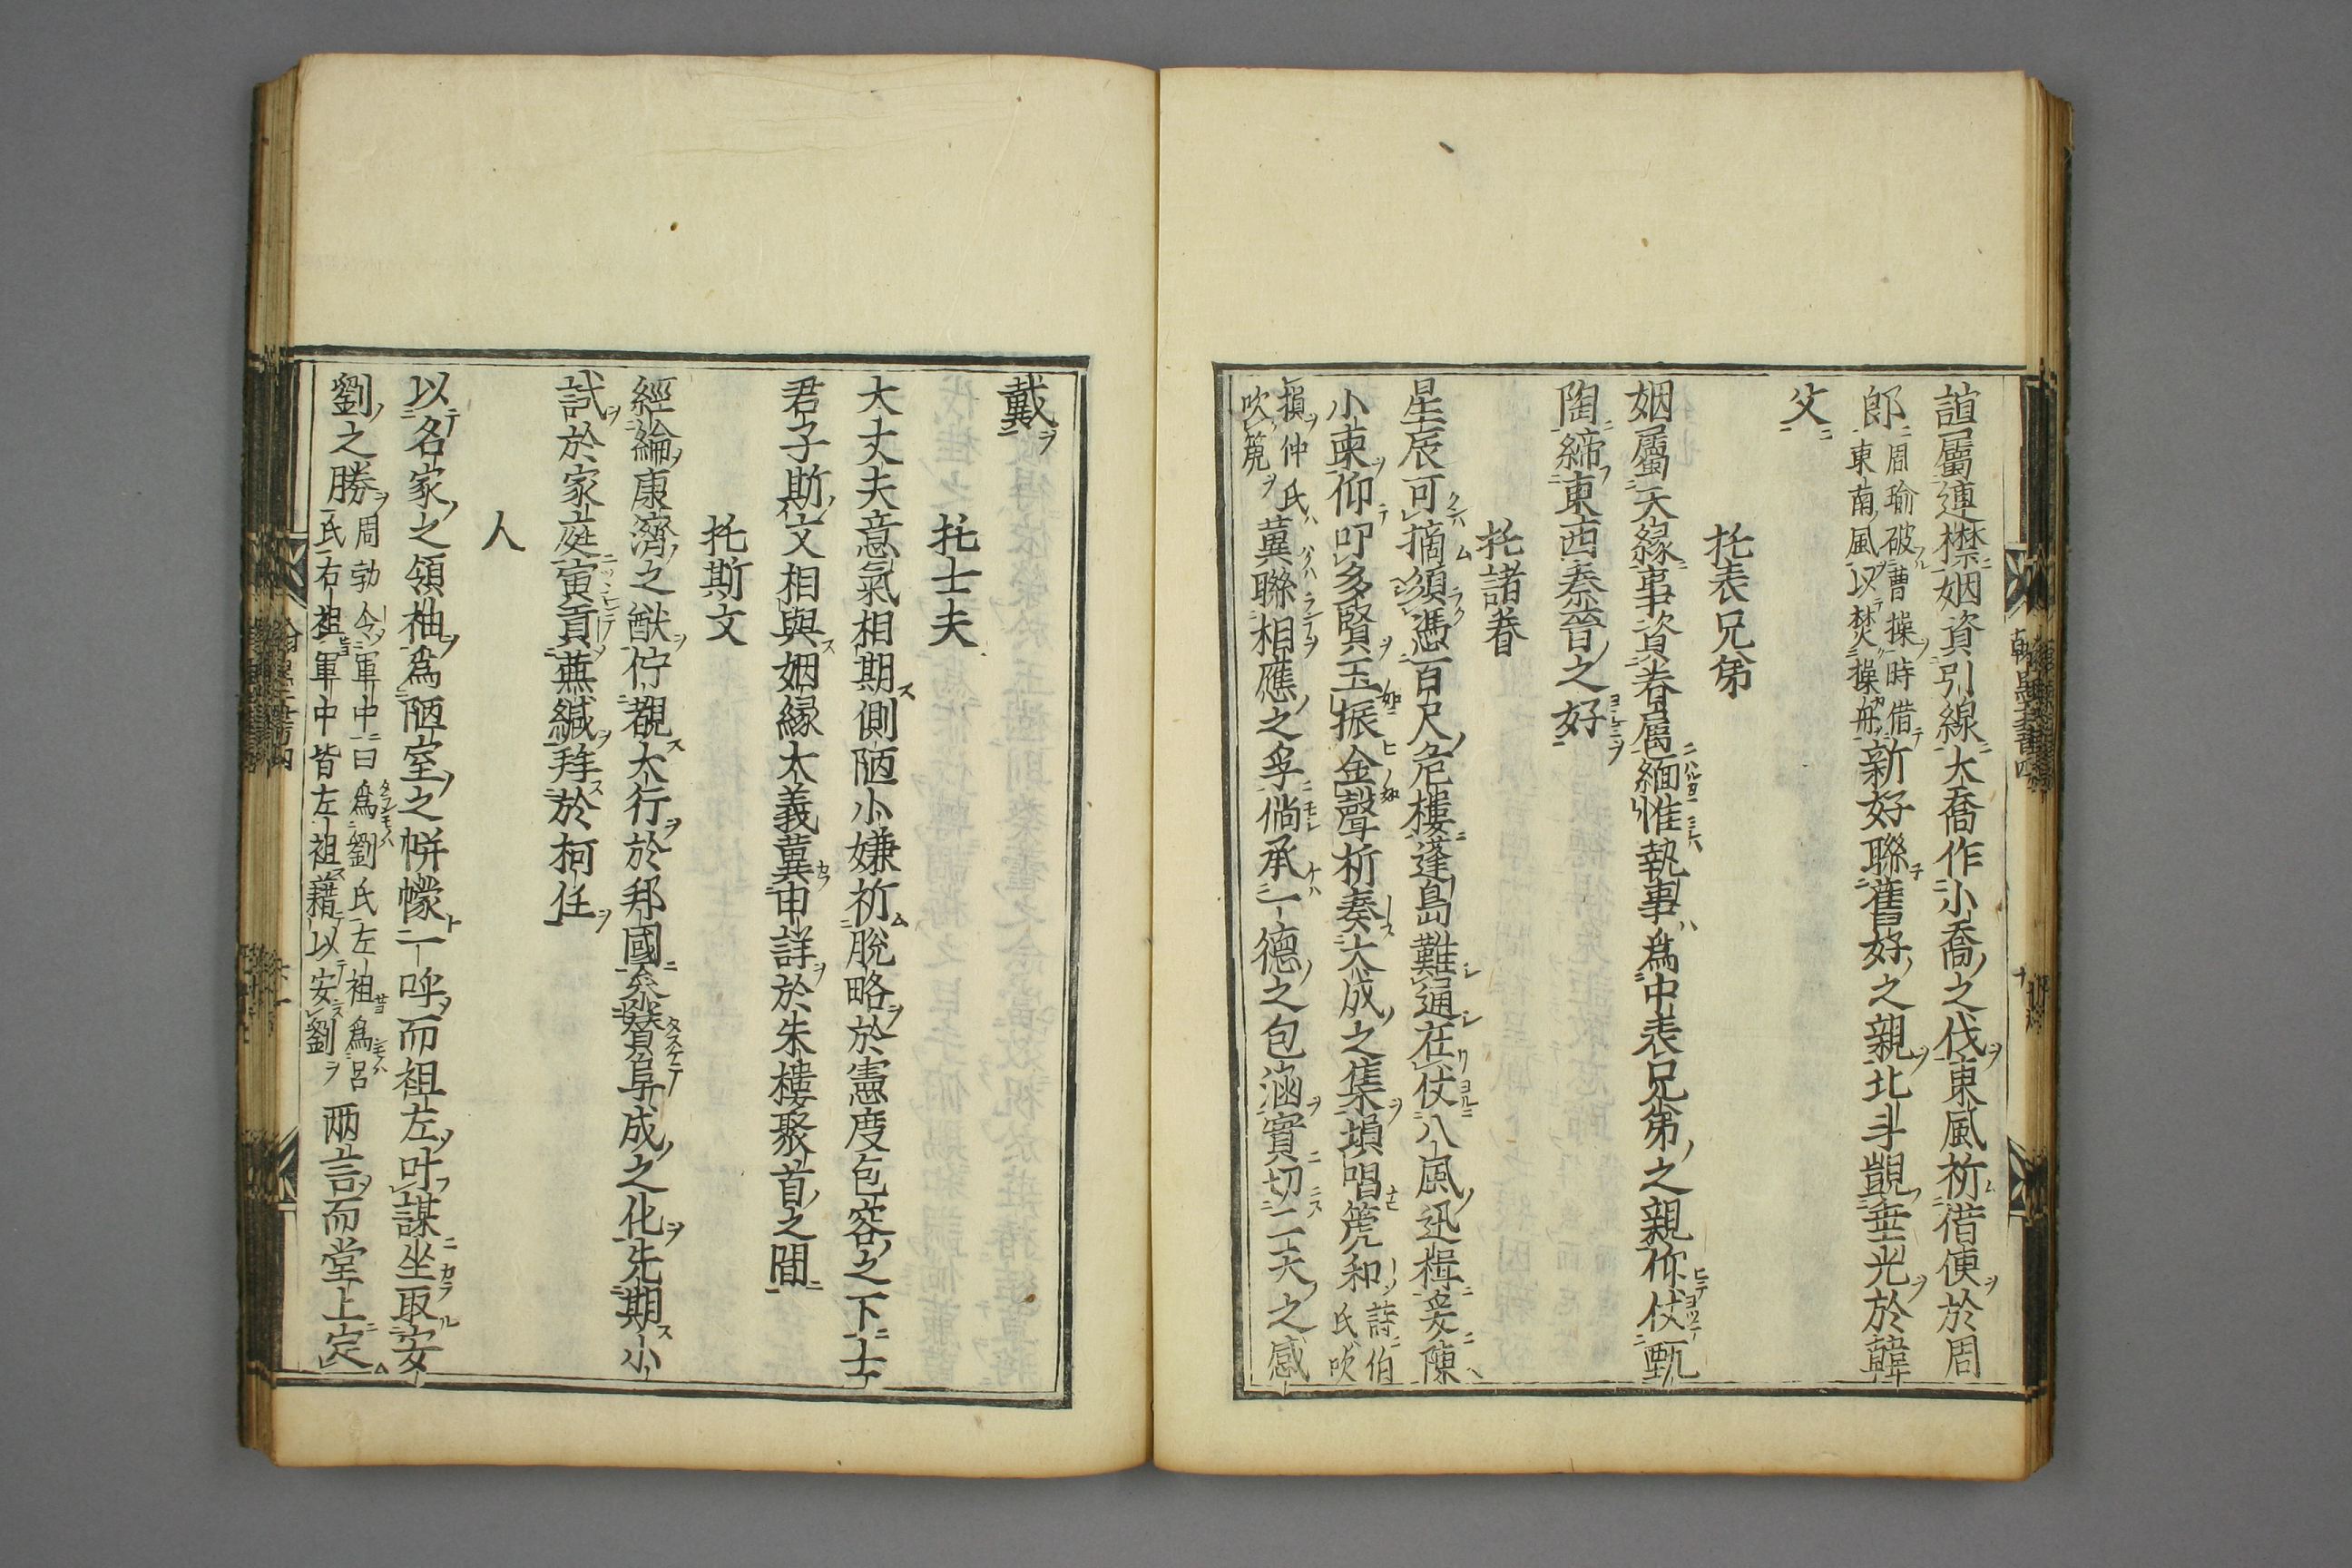 誼屬連襟姻資引線大喬作小喬之伐東風祈借便於周
郎周瑜破曹操時借東南風以焚操舟新好聯舊好之親北斗覬垂光於韓
父
托表兄弟
姻屬天緣事資眷屬緬惟執事為中表兄弟之親你仗甄
陶締東西秦晉之好
托諸眷
星辰可摘須憑百尺危樓蓬島難通在仗八風迅楫妥陳
小柬仰叩多賢玉振金聲祈奏大成之集塤唱箎和詩伯氏吹
損仲氏吹箎冀聯相應之孚倘承一德之包涵實切二天之感
戴
托士夫
大丈夫意氣相期側陋小嫌祈脫略於憲度包容之下士
君子斯文相與姻緣大義冀申詳於朱樓聚首之間
托斯文
經綸康濟之猷佇覩大行於邦國叅贊阜成之化先期小
試於家庭寅貢蕪緘拜於柯任
人
以名家之領袖為陋室之帲幪一呼而袒左叶謀坐取安
劉之勝周勃令軍中曰為劉氏左袒為呂氏右袒軍中皆左袒藉以安劉兩言而堂上定